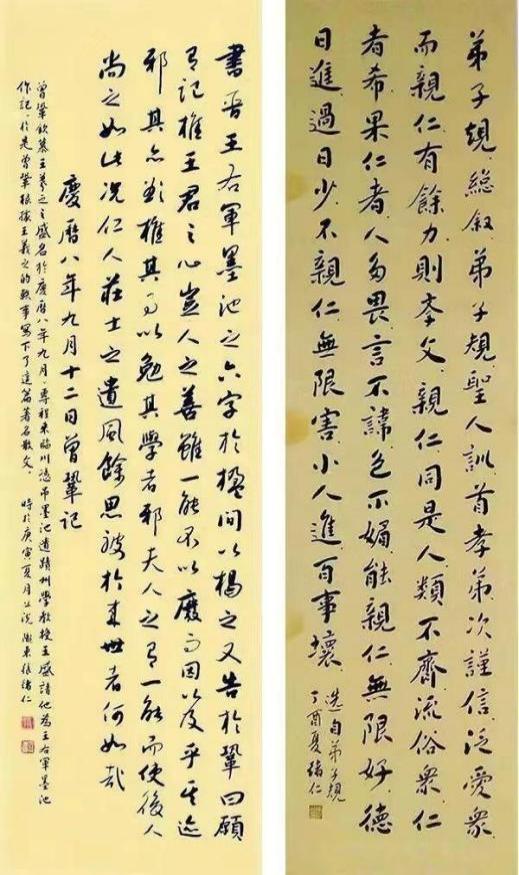 弟子規總叙弟子規聖人訓首孝弟次謹信泛愛衆
而親仁有餘力則斈文親仁同是人類不齊流俗衆仁
者希果仁者人多畏言不諱色不媚能親仁無限好德
日進過日少不親仁無限害小人進百事壞
選自弟子規
丁酉夏緒仁
書晉王右軍墨池之六字於楹間以揭之又告於鞏曰願
有記推王君之心豈人之善雖一能不以廢而因以及乎其迹
邪其亦欲推其事以勉其學者邪夫人之有一能而使後人
尚之如此況仁人莊士之遺風餘思被於来世者何如哉
慶曆八年九月十二日曾鞏記
曾鞏欽慕王羲之之盛名於慶曆八年九月專程来臨川憑吊墨池遺蹟州學教授王盛請他為王右軍墨池
作記，於是曾鞏根據王羲之的軼事寫下了這篇著名散文。 時於庚寅夏月 張緒仁